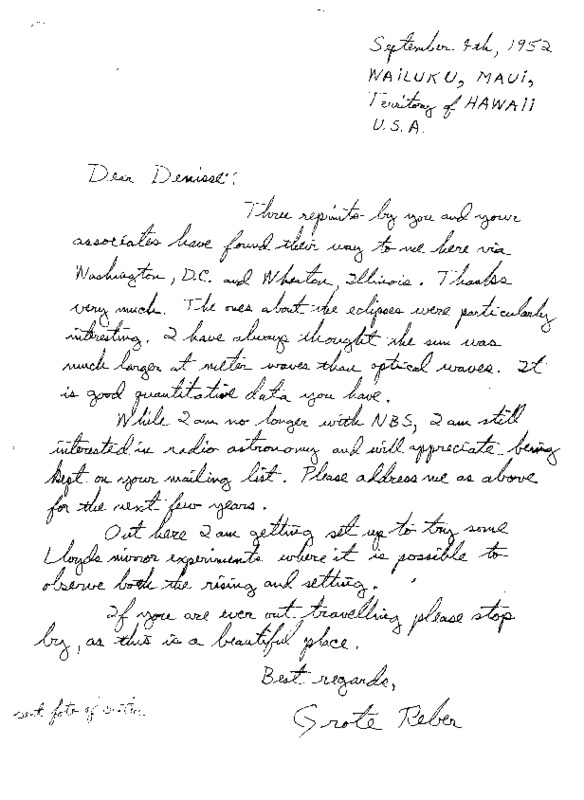 September 4th, 1952
WAILUKU, MAUI,
Territory of HAWAII
U.S.A.
Dear Denisse:
Three reprints by you and your
associates have found their way to me here via
Washington, D.C. and Wheaton, Illinois. Thanks
very much. The ones about the eclipses were particularly
interesting. I have always thought the sun was
much larger at meter waves than optical waves. It
is good quantitative data you have.
While I am no longer with NBS, I am still
interested in radio astronomy and will appreciate being
kept on your mailing list. Please address me as above
for the next few years.
Out here I am getting set up to try some
Lloyds mirror experiments where it is possible to
observe both the rising and setting.
If you are ever out travelling please stop
by, as this is a beautiful place.
Best regards,
Grote Reber
sent foto of